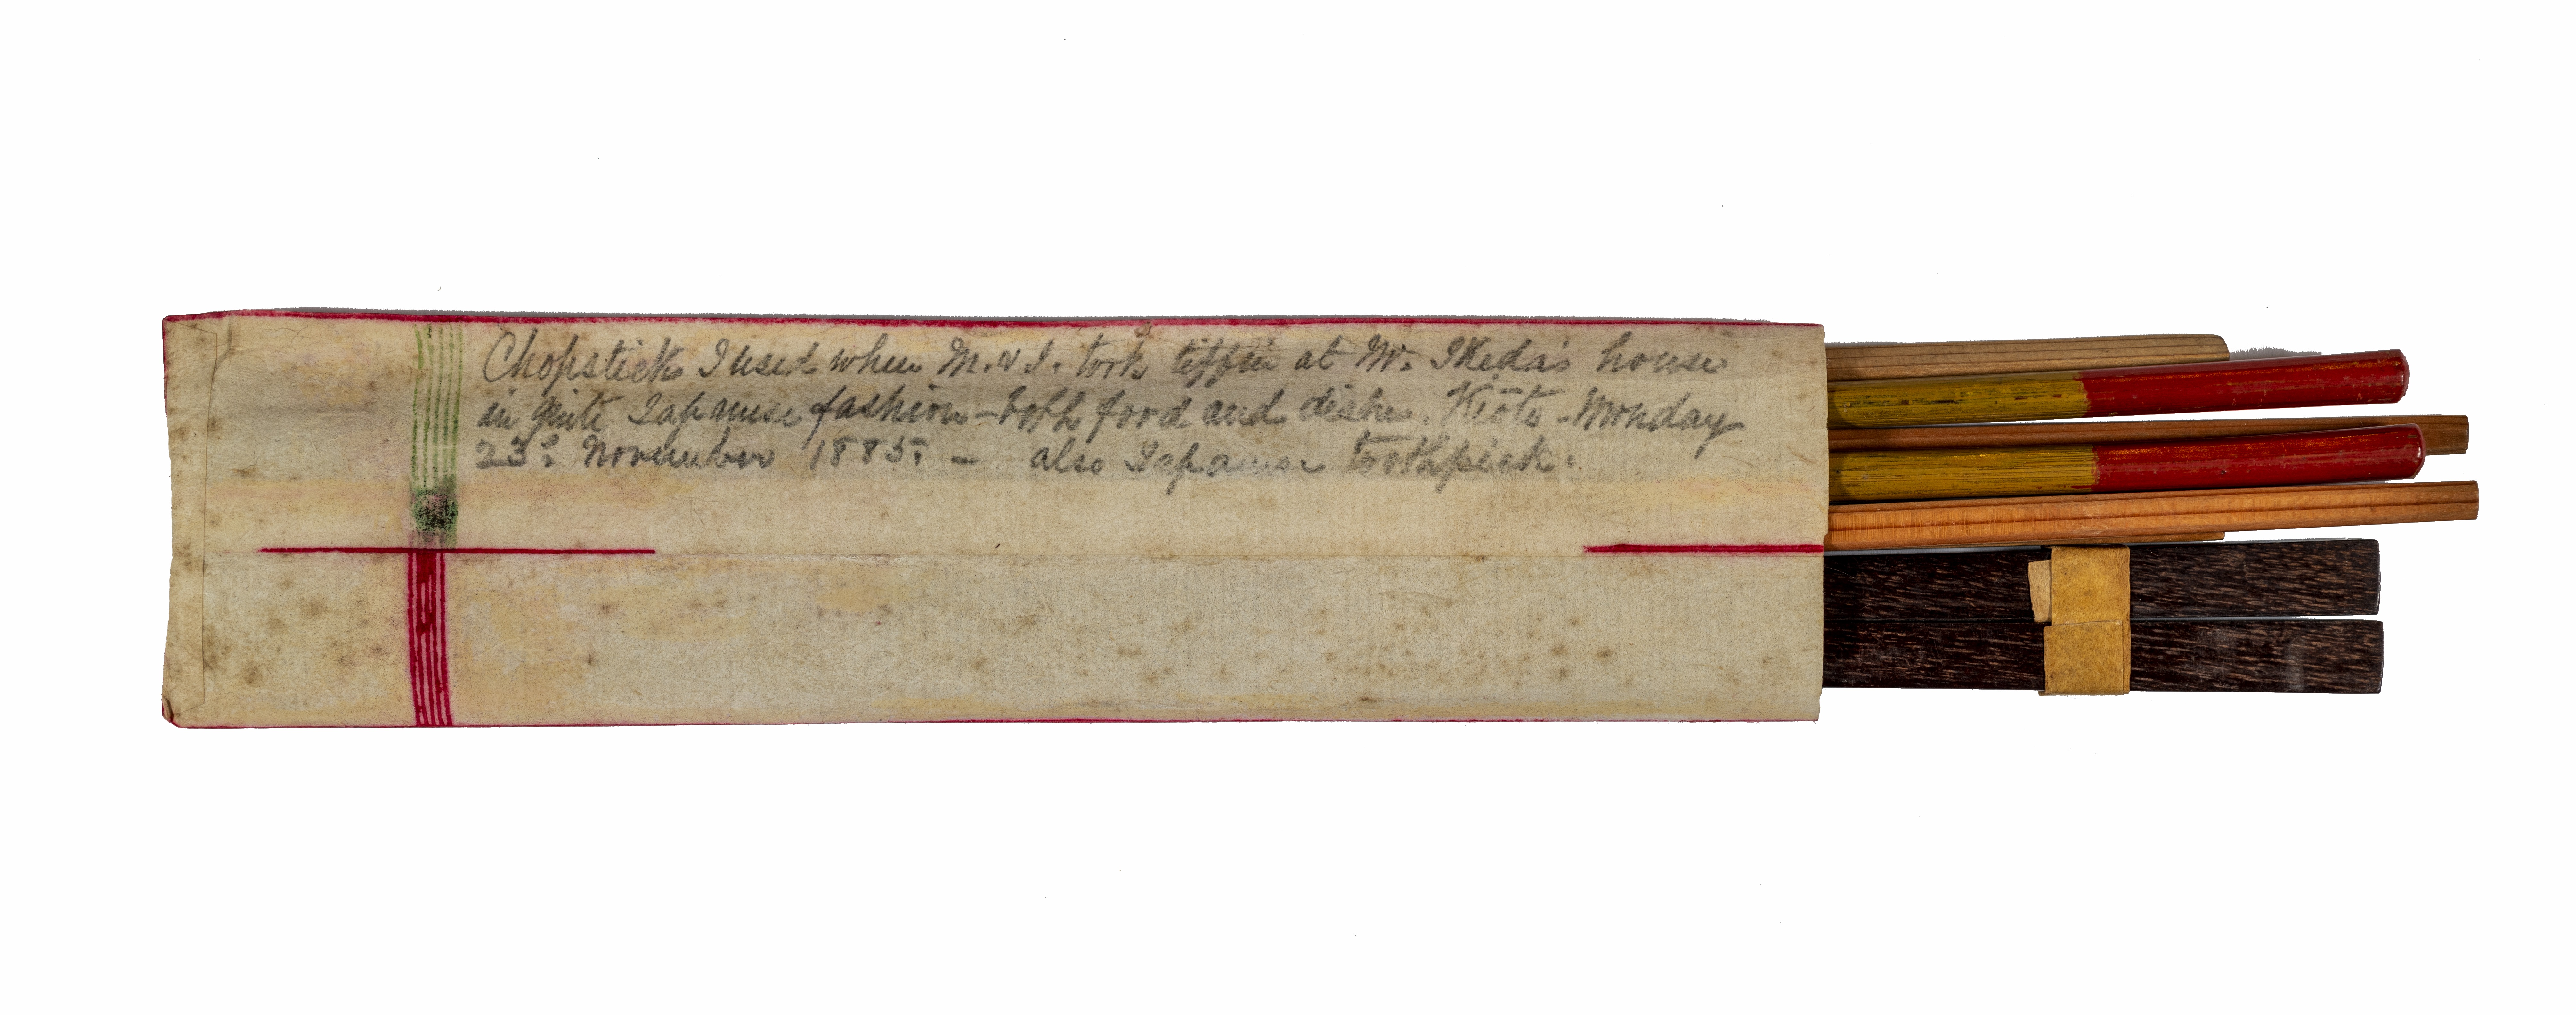 Chopsticks I used when M. & I. took tiffin at Mr. Ikeda's house
in quite Japanese fashion - both food and dishes. Kioto - Monday
23d. November 1885. - also Japanese toothpick.